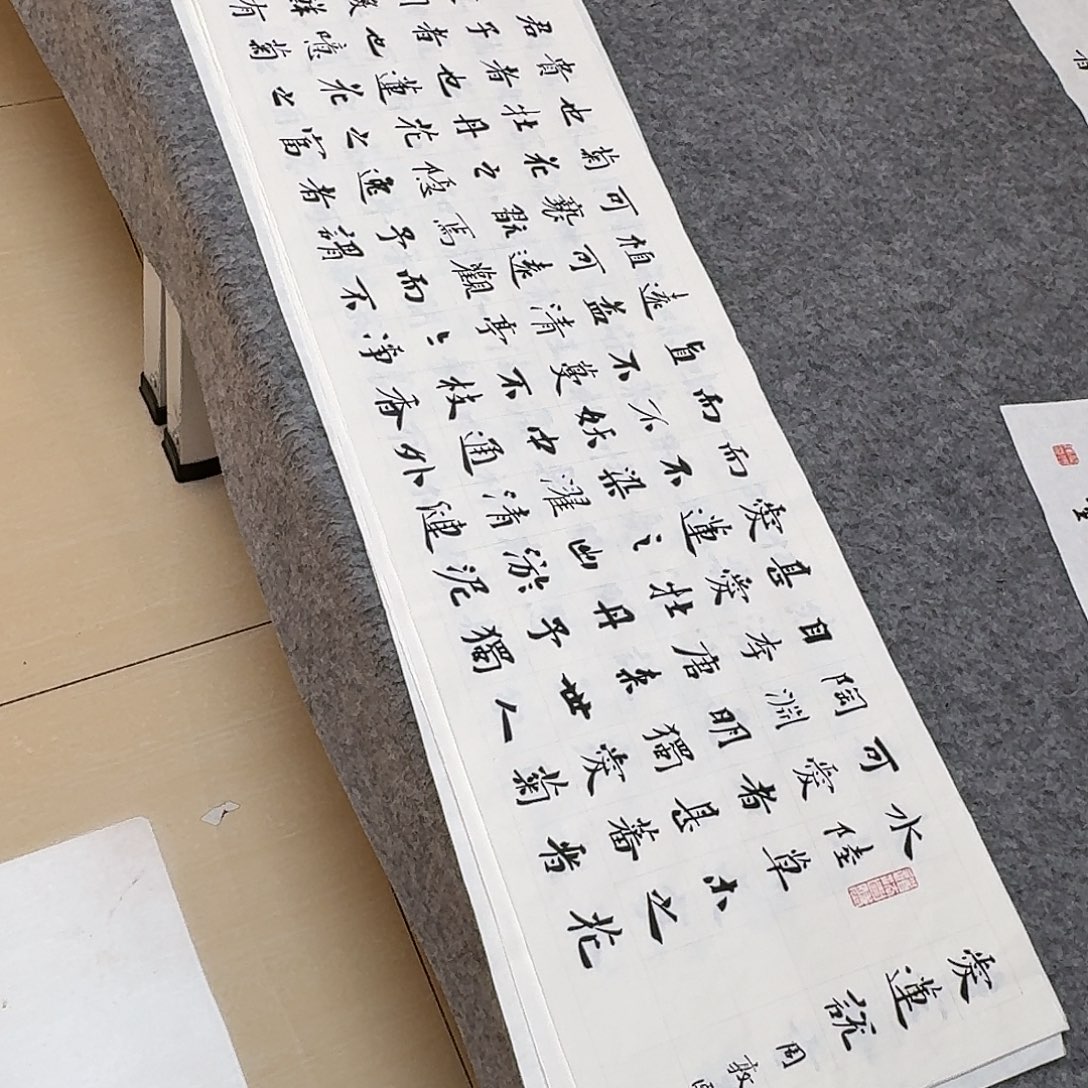 愛蓮説
周敦
水陸草木之花
可愛者甚蕃晉
陶淵明獨愛菊
自李唐來世人
甚愛牡丹予獨
愛蓮之出淤泥
而不染濯清漣
而不妖中通外
直不蔓不枝香
遠益清亭〻淨
植可遠觀而不
可褻翫焉予謂
菊花之隱逸者
也牡丹花之富
貴者也蓮花之
君子者也噫菊
鮮有